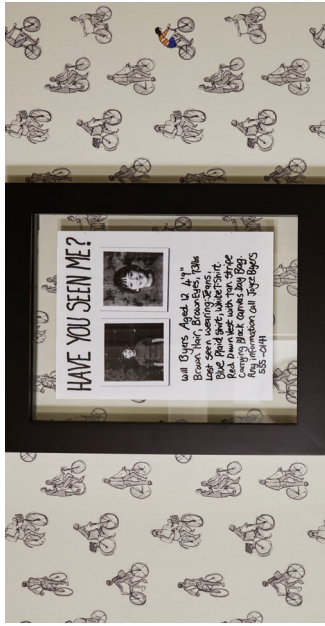 HAVE YOU SEEN ME?
Will Byers Aged 12 4'9"
Brown Hair, Brown Eyes, 73lbs
Last seen wearing: Jeans,
Blue Plaid Shirt, White T-Shirt.
Red Down Vest with tan Stripe
Carrying Black Canvas Day Bag.
Any information call Joyce Byers
555-0141